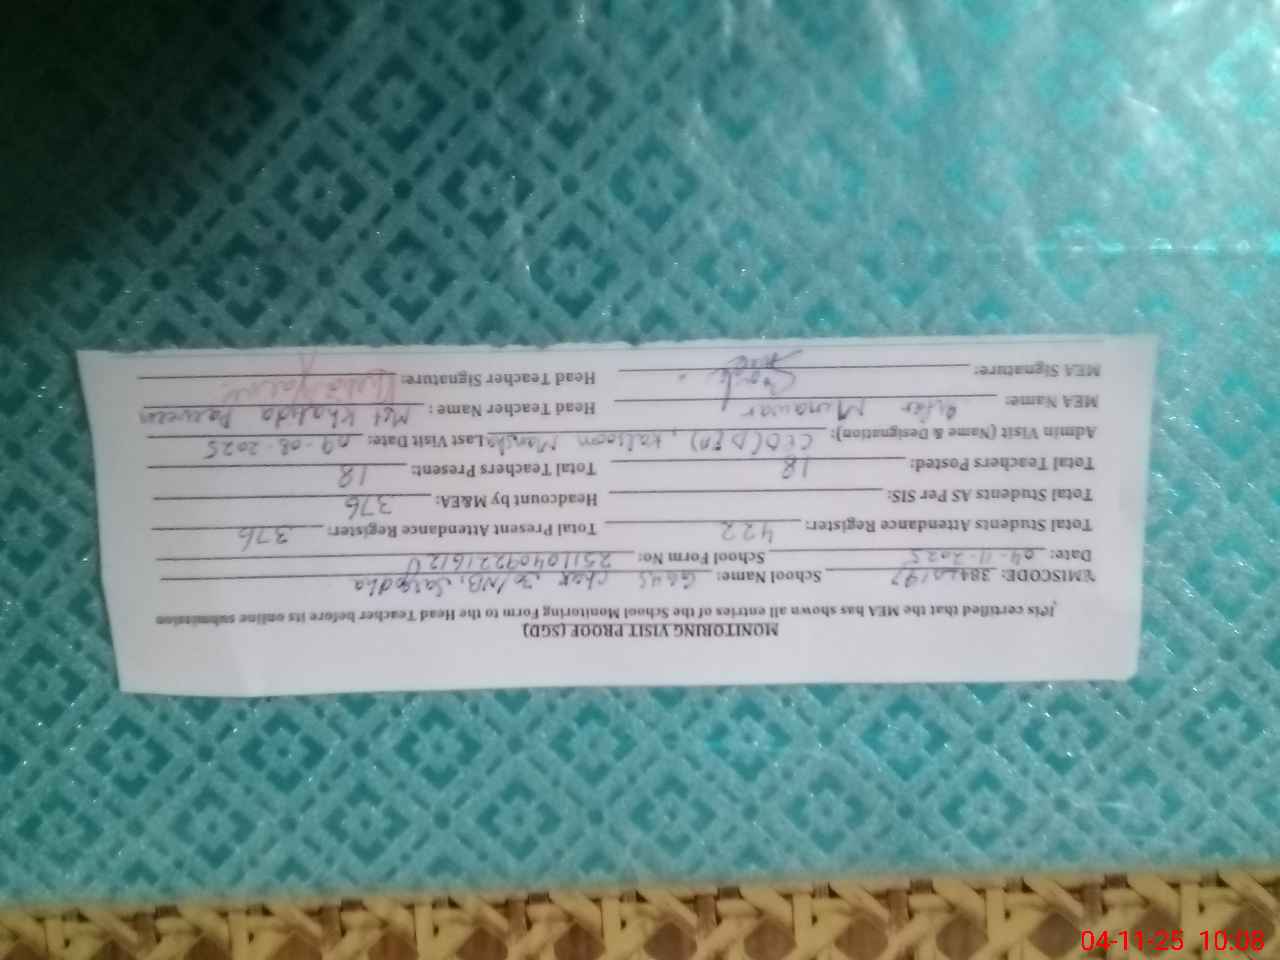 MONITORING VISIT PROOF (SGD)
It is certified that the MEA has shown all entries of the School Monitoring Form to the Head Teacher before its online submission
EMISCODE: 384 School Name: Chak 30/NB, Sargodha
Date: 04-11-2025 School Form No:
Total Students Attendance Register: 422 Total Present Attendance Register: 376
Total Students AS Per SIS: Headcount by M&EA: 376
Total Teachers Posted: 18 Total Teachers Present: 18
Admin Visit (Name & Designation): CEO(DEA), Kalsoom Last Visit Date: 09-08-2025
MEA Name: Munawar Head Teacher Name: Mst Khalida Parveen
MEA Signature: Head Teacher Signature:
04-11-25 10:08